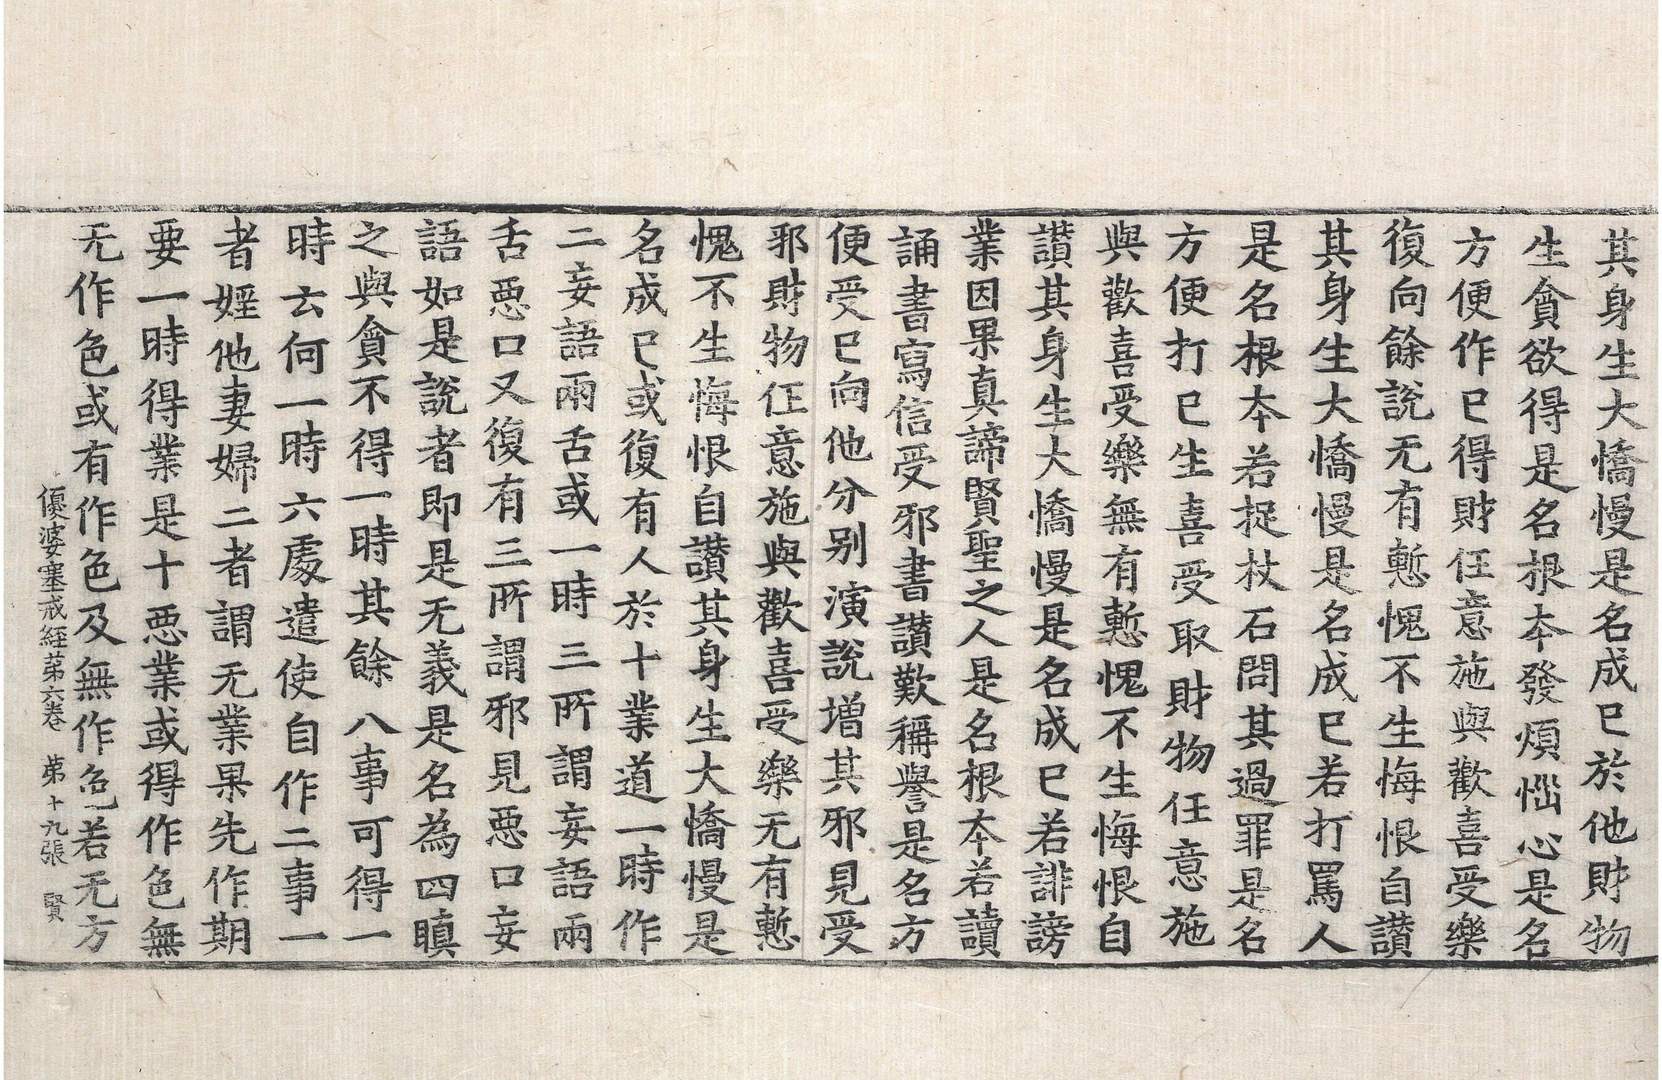 其身生大憍慢是名成已於他財物
生貪欲得是名根本發煩惱心是名
方便作已得財任意施與歡喜受樂
復向餘說无有慙愧不生悔恨自讃
其身生大憍慢是名成已若打罵人
是名根本若捉杖石問其過罪是名
方便打已生喜受取財物任意施
與歡喜受樂無有慙愧不生悔恨自
讃其身生大憍慢是名成已若誹謗
業因果真諦賢聖之人是名根本若讀
誦書寫信受邪書讃歎稱譽是名方
便受已向他分別演說增其邪見受
邪財物任意施與歡喜受樂无有慙
愧不生悔恨自讃其身生大憍慢是
名成已或復有人於十業道一時作
二妄語兩舌或一時三所謂妄語兩
舌惡口又復有三所謂邪見惡口妄
語如是說者即是无義是名為四瞋
之與貪不得一時其餘八事可得一
時云何一時六處遣使自作二事一
者婬他妻婦二者謂无業果先作期
要一時得業是十惡業或得作色無
无作色或有作色及無作色若无方
優婆塞戒經第六卷 第十九張 賢